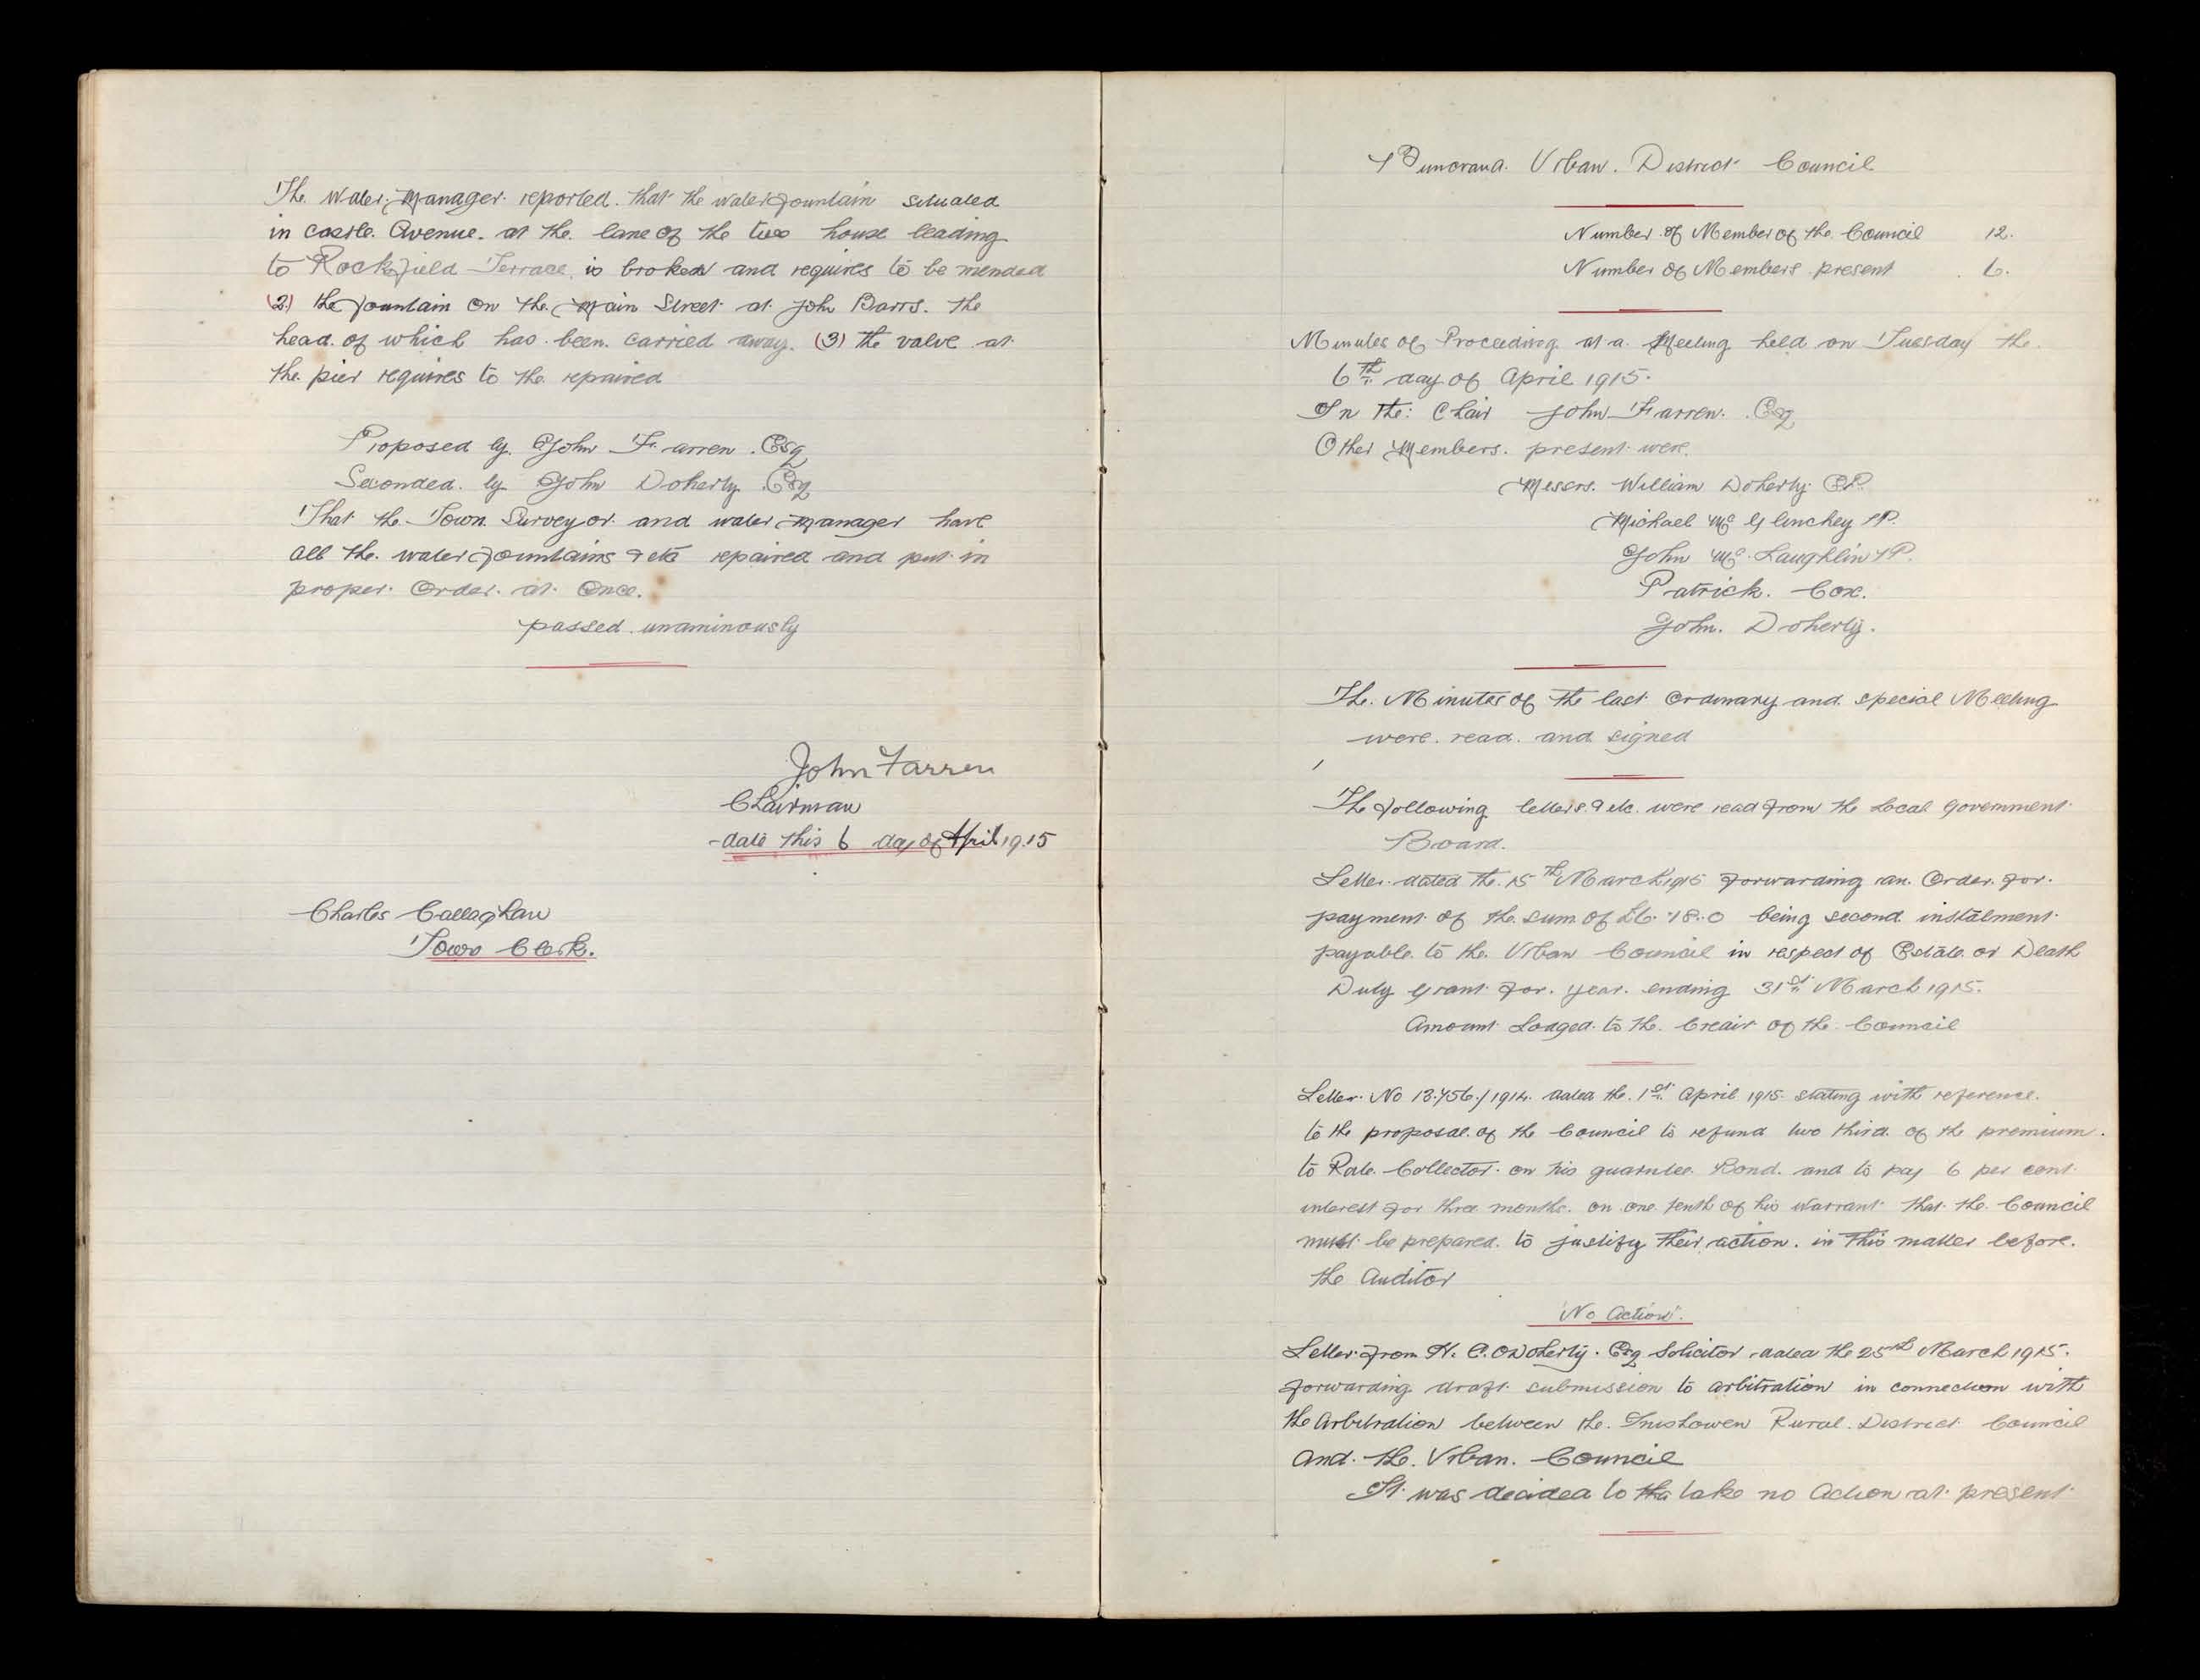 The Water Manager reported that the water fountain situated
in castle Avenue at the lane of the two house leading
to Rockfield Terrace is broken and requires to be mended
(2) the fountain on the Main Street at John Barrs. the
head of which has been carried away. (3) the valve at
the pier requires to the repaired
Proposed by John Farren Esq
Seconded by John Doherty Esq
That the Town Surveyor and water manager have
all the water fountains & etc repaired and put in
proper Order at Once.
passed unaminously
John Farren
Chairman
date this 6 day of April 1915
Charles Callaghan
Town Clerk.
Buncrana Urban District Council
Number of Member of the Council 12.
Number of Members present 6.
Minutes of Proceeding at a Meeting held on Tuesday the
6th day of April 1915.
In the: Chair John Farren. Esq
Other Members present were.
Messrs. William Doherty
Michael Mc Glinchey JP.
John Mc Laughlin JP.
Patrick Cox.
John. Doherty.
The Minutes of the last Ordinary and special Meeting
were read and signed
The following letters & etc. were read from the Local Government
Board.
Letter dated the 15th March 1915 forwarding an Order for
payment of the sum of £6.18.0 being second instalment
payable to the Urban Council in respect of Estate or Death
Duty Grant for year ending 31st March 1915.
Amount Lodged to the Credit of the Council
Letter No 13.756/1914 dated the 1st April 1915 stating with reference
to the proposal of the Council to refund two third of the premium
to Rate Collector on his guarntee Bond and to pay 6 per cent
interest for three months on one tenth of his Warrant that the Council
must be prepared to justify their action in this matter before
the Auditor
"No Action".
Letter from H. C. O'Doherty Esq Solicitor dated the 25th March 1915.
forwarding draft submission to arbitration in connection with
the Arbitration between the Inishowen Rural District Council
and the Urban Council
It was decided to take no Action at present